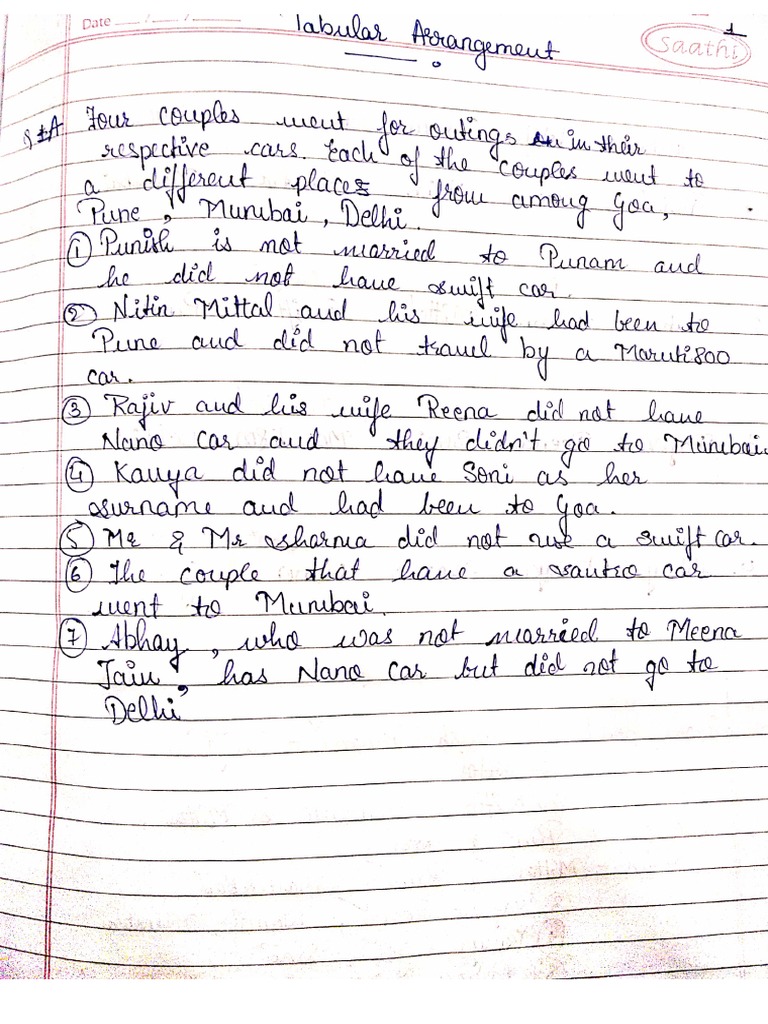 Date __/__/__ Tabular Arrangement 1
saathi
Q1A Four couples went for outings in their
respective cars. Each of the couples went to
a different places from among Goa,
Pune, Mumbai, Delhi.
① Punish is not married to Punam and
he did not have swift car.
② Nitin Mittal and his wife had been to
Pune and did not travel by a Maruti 800
car.
③ Rajiv and his wife Reena did not have
Nano car and they didn't go to Mumbai.
④ Kavya did not have Soni as her
surname and had been to Goa.
⑤ Mr & Mr sharma did not use a swift car.
⑥ The couple that have a santro car
went to Mumbai.
⑦ Abhay, who was not married to Meena
Jain, has Nano car but did not go to
Delhi